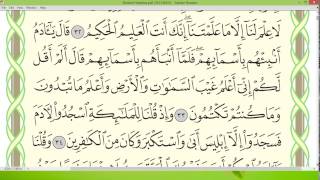 لَا عِلْمَ لَنَآ إِلَّا مَا عَلَّمْتَنَآ إِنَّكَ أَنتَ ٱلْعَلِيمُ ٱلْحَكِيمُ ٣٢ قَالَ يَـٰٓـَٔادَمُ
أَنۢبِئْهُم بِأَسْمَآئِهِمْ فَلَمَّآ أَنۢبَأَهُم بِأَسْمَآئِهِمْ قَالَ أَلَمْ أَقُل
لَّكُمْ إِنِّىٓ أَعْلَمُ غَيْبَ ٱلسَّمَـٰوَٰتِ وَٱلْأَرْضِ وَأَعْلَمُ مَا تُبْدُونَ
وَمَا كُنتُمْ تَكْتُمُونَ ٣٣ وَإِذْ قُلْنَا لِلْمَلَـٰٓئِكَةِ ٱسْجُدُوا۟ لِـَٔادَمَ
فَسَجَدُوٓا۟ إِلَّآ إِبْلِيسَ أَبَىٰ وَٱسْتَكْبَرَ وَكَانَ مِنَ ٱلْكَـٰفِرِينَ ٣٤ وَقُلْنَا